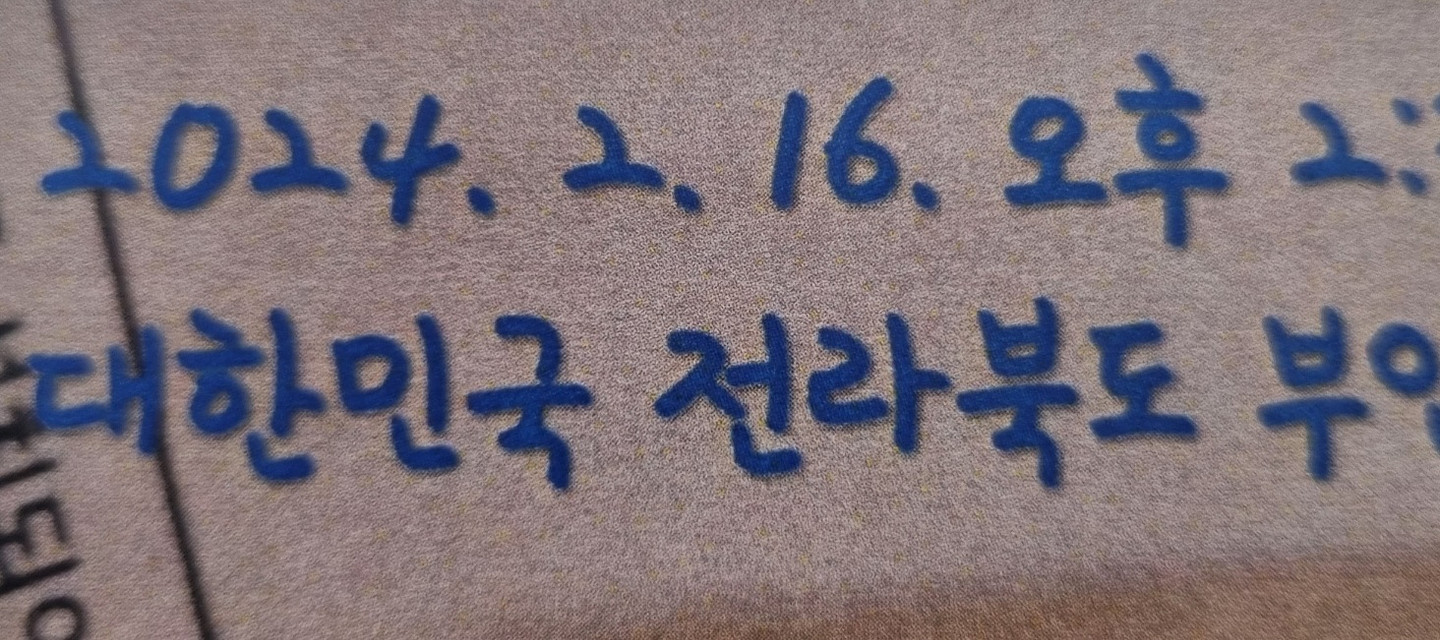 2024. 2. 16. 오후
대한민국 전라북도